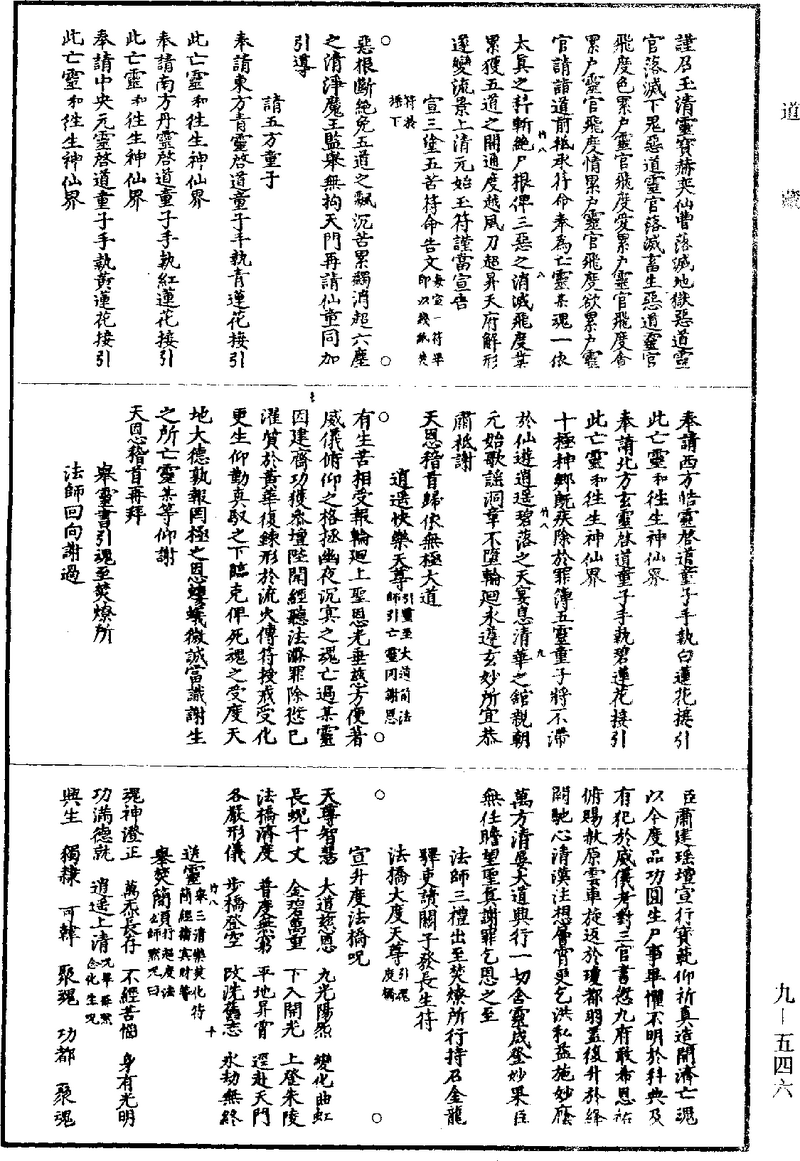 道藏
謹召玉清靈寶赫奕仙曹落滅地獄惡道靈
官落滅下鬼惡道靈官落滅畜生惡道靈官
飛度色累户靈官飛度愛累户靈官飛度貪
累户靈官飛度情累户靈官飛度欲累户靈
官請詣道前祗承符命奉為亡靈某魂一依
太真之科斬絶尸根俾三惡之消滅飛度某
累獲五道之開通度越風刀超昇天府解形
遂變流景上清元始玉符謹當宣告
宣三塗五苦符命告文每宣一符畢即以幾紙焚
符於
惡根斷絶免五道之飄沉苦累蠲消超六塵
之清淨魔王監舉無拘天門再請仙童同加
引導
請五方童子
奉請東方青靈啓道童子手執青蓮花接引
此亡靈和往生神仙界
奉請南方丹靈啓道童子手執紅蓮花接引
此亡靈和往生神仙界
奉請中央元靈啓道童子手執黃蓮花接引
此亡靈和往生神仙界
奉請西方皓靈啓道童子手執白蓮花接引
此亡靈和往生神仙界
奉請北方玄靈啓道童子手執碧蓮花接引
此亡靈和往生神仙界
十極神鄉既疾除於罪簿五靈童子將不滯
於仙遊逍遥碧落之天宴息清華之舘親朝
元始歌謡洞章不墮輪迴永遵玄妙所宜恭
肅祗謝
天恩稽首歸依無極大道
逍遥快樂天尊引靈至大道前法師引亡靈同謝恩
有生苦相受報輪迴上聖恩光垂慈方便著
威儀俯仰之格拯幽夜沉冥之魂亡過某靈
因建齋功獲參壇陛聞經聽法滌罪除愆已
濯質於黃華復鍊形於流火傳符授戒受化
更生仰勤真馭之下臨克俾死魂之受度天
地大德孰報罔極之恩螻蟻微誠當識謝生
之所亡靈某等仰謝
天恩稽首再拜
舉靈書引魂至焚燎所
法師回向謝過
臣肅建瑶壇宣行寶範仰祈真造開濟亡魂
以今度品功圓生尸事畢懼不明於科典及
有犯於威儀考對三官書愆九府敢希恩祐
俯賜赦原雲車旋返於瓊都羽蓋復升於絳
闕馳心清漢注想層霄更乞洪私益施妙廕
萬方清晏大道興行一切含靈咸登妙果臣
無任瞻望聖真謝罪乞恩之至
法師三禮出至焚燎所行持召金龍
驛吏請關子發長生符
法橋大度天尊引魂度橋
宣升度法橋呪
天尊智慧　大道慈恩　九光陽煞　變化曲虹
長蜺千丈　金碧萬重　下入開光　上登朱陵
法橋濟度　普度無窮　平地昇霄　逕赴天門
各嚴形儀　步橋登空　改洗舊忘　永劫無終
送靈舉三清樂焚化符簡經籙冥財等
舉焚簡頌行超度法法師默呪曰
魂神澄正　萬炁長存　不經苦惱　身有光明
功滿德就　逍遥上清次舉蘇默念化生呪
與生　獨隸　可韓　聚魂　功都　聚魂
九—五四六